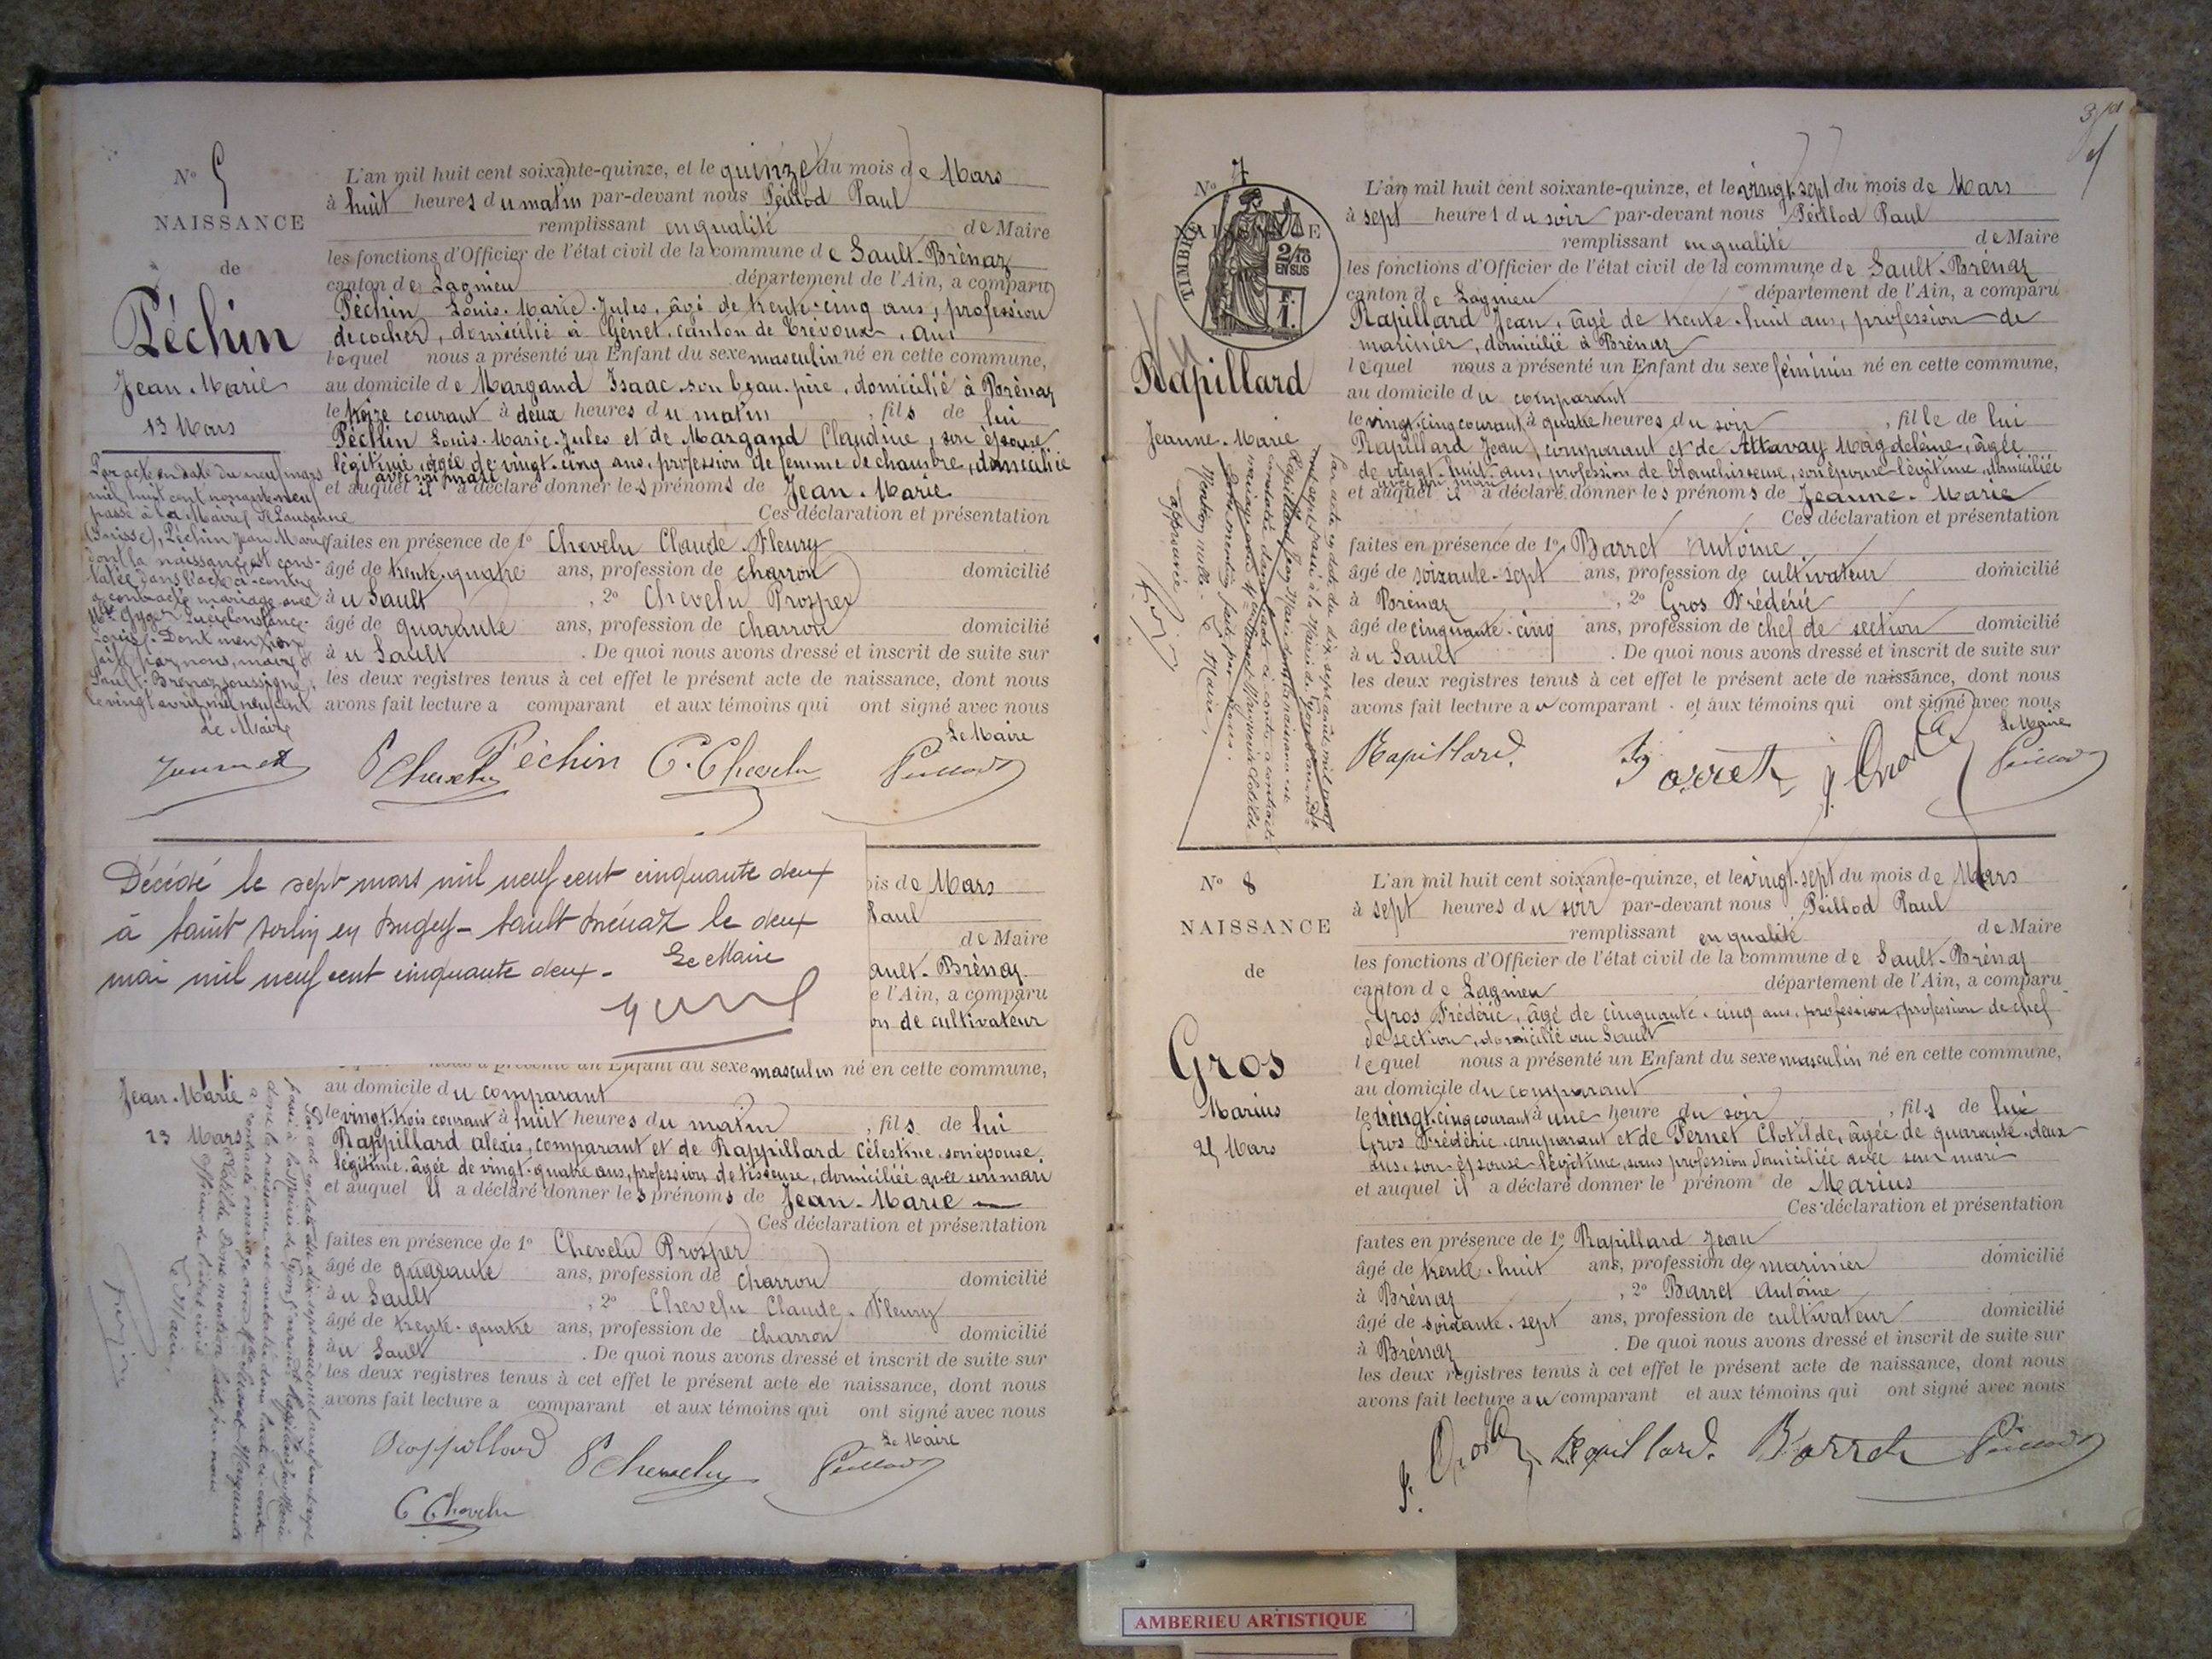 N° 5
NAISSANCE
de
Péchin
Jean-Marie
13 Mars
Par acte en date du neuf mars
mil huit cent nonante neuf
passé à la Mairie de Lausanne
(Suisse), Péchin Jean Marie
dont la naissance est cons-
tatée dans l'acte ci-contre
a contracté mariage avec
Lucie Constance
Dont mention
faite par nous, maire de
Sault-Brénaz soussigné,
le vingt avril mil neuf cent
Le Maire
L'an mil huit cent soixante-quinze, et le quinze du mois de Mars
à huit heures du matin par-devant nous Peillod Paul
remplissant en qualité de Maire
les fonctions d'Officier de l'état civil de la commune de Sault-Brénaz
canton de Lagnieu département de l'Ain, a comparu
Péchin Louis-Marie-Jules, âgé de trente-cinq ans, profession
de cocher, domicilié à Genet, canton de Trévoux, Ain
lequel nous a présenté un Enfant du sexe masculin né en cette commune,
au domicile de Margand Isaac son beau-père, domicilié à Brénaz
le treize courant à deux heures du matin, fils de lui
Péchin Louis-Marie-Jules et de Margand Claudine, son épouse
légitime, âgée de vingt-cinq ans, profession de femme de chambre, domiciliée
avec son mari
et auquel il a déclaré donner les prénoms de Jean-Marie
Ces déclaration et présentation
faites en présence de 1° Chevelu Claude-Fleury
âgé de trente-quatre ans, profession de charron domicilié
au Sault, 2° Chevelu Prosper
âgé de quarante ans, profession de charron domicilié
au Sault. De quoi nous avons dressé et inscrit de suite sur
les deux registres tenus à cet effet le présent acte de naissance, dont nous
avons fait lecture a comparant et aux témoins qui ont signé avec nous
Le Maire
P Chevelu Péchin C. Chevelu Peillod
Décédé le sept mars mil neuf cent cinquante deux
à Saint Sorlin en Bugey - Sault Brénaz le deux
mai mil neuf cent cinquante deux.
Le Maire
ois de Mars
Paul
de Maire
ault-Brénaz
e l'Ain, a comparu
on de cultivateur
nous a présenté un Enfant du sexe masculin né en cette commune,
Jean-Marie
23 Mars
au domicile du comparant
le vingt-trois courant à huit heures du matin, fils de lui
Rappillard Alexis, comparant et de Rappillard Célestine, son épouse
légitime, âgée de vingt-quatre ans, profession de tisseuse, domiciliée avec son mari
et auquel il a déclaré donner les prénoms de Jean-Marie
Ces déclaration et présentation
faites en présence de 1° Chevelu Prosper
âgé de quarante ans, profession de charron domicilié
au Sault, 2° Chevelu Claude-Fleury
âgé de trente-quatre ans, profession de charron domicilié
au Sault. De quoi nous avons dressé et inscrit de suite sur
les deux registres tenus à cet effet le présent acte de naissance, dont nous
avons fait lecture a comparant et aux témoins qui ont signé avec nous
Le Maire
Rappillard P Chevelu Peillod
C Chevelu
Par acte en date du dix septembre mil neuf cent sept
passé à la Mairie de Lyon Rappillard Jean Marie
dont la naissance est constatée dans l'acte ci-contre
a contracté mariage avec Marguerite
Clotilde. Dont mention faite par nous
officier de l'état civil
Le Maire,
N° 7
NAISSANCE
TIMBRE
2/10
EN SUS
F.
1.
Rapillard
Jeanne-Marie
Par acte en date du dix septembre mil neuf
cent sept passé à la Mairie de Lyon
Rappillard Jean Marie dont la naissance est
constatée dans l'acte ci-contre a contracté
mariage avec Marguerite Clotilde
Dont mention faite par nous.
Mention nulle. Le Maire,
approuvée
L'an mil huit cent soixante-quinze, et le vingt-sept du mois de Mars
à sept heures du soir par-devant nous Peillod Paul
remplissant en qualité de Maire
les fonctions d'Officier de l'état civil de la commune de Sault-Brénaz
canton de Lagnieu département de l'Ain, a comparu
Rapillard Jean, âgé de trente-huit ans, profession de
marinier, domicilié à Brénaz
lequel nous a présenté un Enfant du sexe féminin né en cette commune,
au domicile du comparant
le vingt-cinq courant à quatre heures du soir, fille de lui
Rapillard Jean, comparant et de Attavay Magdeleine, âgée
de vingt-huit ans, profession de blanchisseuse, son épouse légitime, domiciliée
avec son mari
et auquel il a déclaré donner les prénoms de Jeanne-Marie
Ces déclaration et présentation
faites en présence de 1° Barret Antoine
âgé de soixante-sept ans, profession de cultivateur domicilié
à Brénaz, 2° Gros Frédéric
âgé de cinquante-cinq ans, profession de chef de section domicilié
au Sault. De quoi nous avons dressé et inscrit de suite sur
les deux registres tenus à cet effet le présent acte de naissance, dont nous
avons fait lecture au comparant et aux témoins qui ont signé avec nous
Le Maire
Rapillard Barret Gros Peillod
N° 8
NAISSANCE
de
Gros
Marius
25 Mars
L'an mil huit cent soixante-quinze, et le vingt-sept du mois de Mars
à sept heures du soir par-devant nous Peillod Paul
remplissant en qualité de Maire
les fonctions d'Officier de l'état civil de la commune de Sault-Brénaz
canton de Lagnieu département de l'Ain, a comparu
Gros Frédéric, âgé de cinquante-cinq ans, profession, profession de chef
de section, domicilié au Sault
lequel nous a présenté un Enfant du sexe masculin né en cette commune,
au domicile du comparant
le vingt-cinq courant à une heure du soir, fils de lui
Gros Frédéric comparant et de Pernet Clotilde, âgée de quarante-deux
ans, son épouse légitime, sans profession domiciliée avec son mari
et auquel il a déclaré donner le prénom de Marius
Ces déclaration et présentation
faites en présence de 1° Rapillard Jean
âgé de trente-huit ans, profession de marinier domicilié
à Brénaz, 2° Barret Antoine
âgé de soixante-sept ans, profession de cultivateur domicilié
à Brénaz. De quoi nous avons dressé et inscrit de suite sur
les deux registres tenus à cet effet le présent acte de naissance, dont nous
avons fait lecture au comparant et aux témoins qui ont signé avec nous
Gros Rapillard Barret Peillod
AMBERIEU ARTISTIQUE